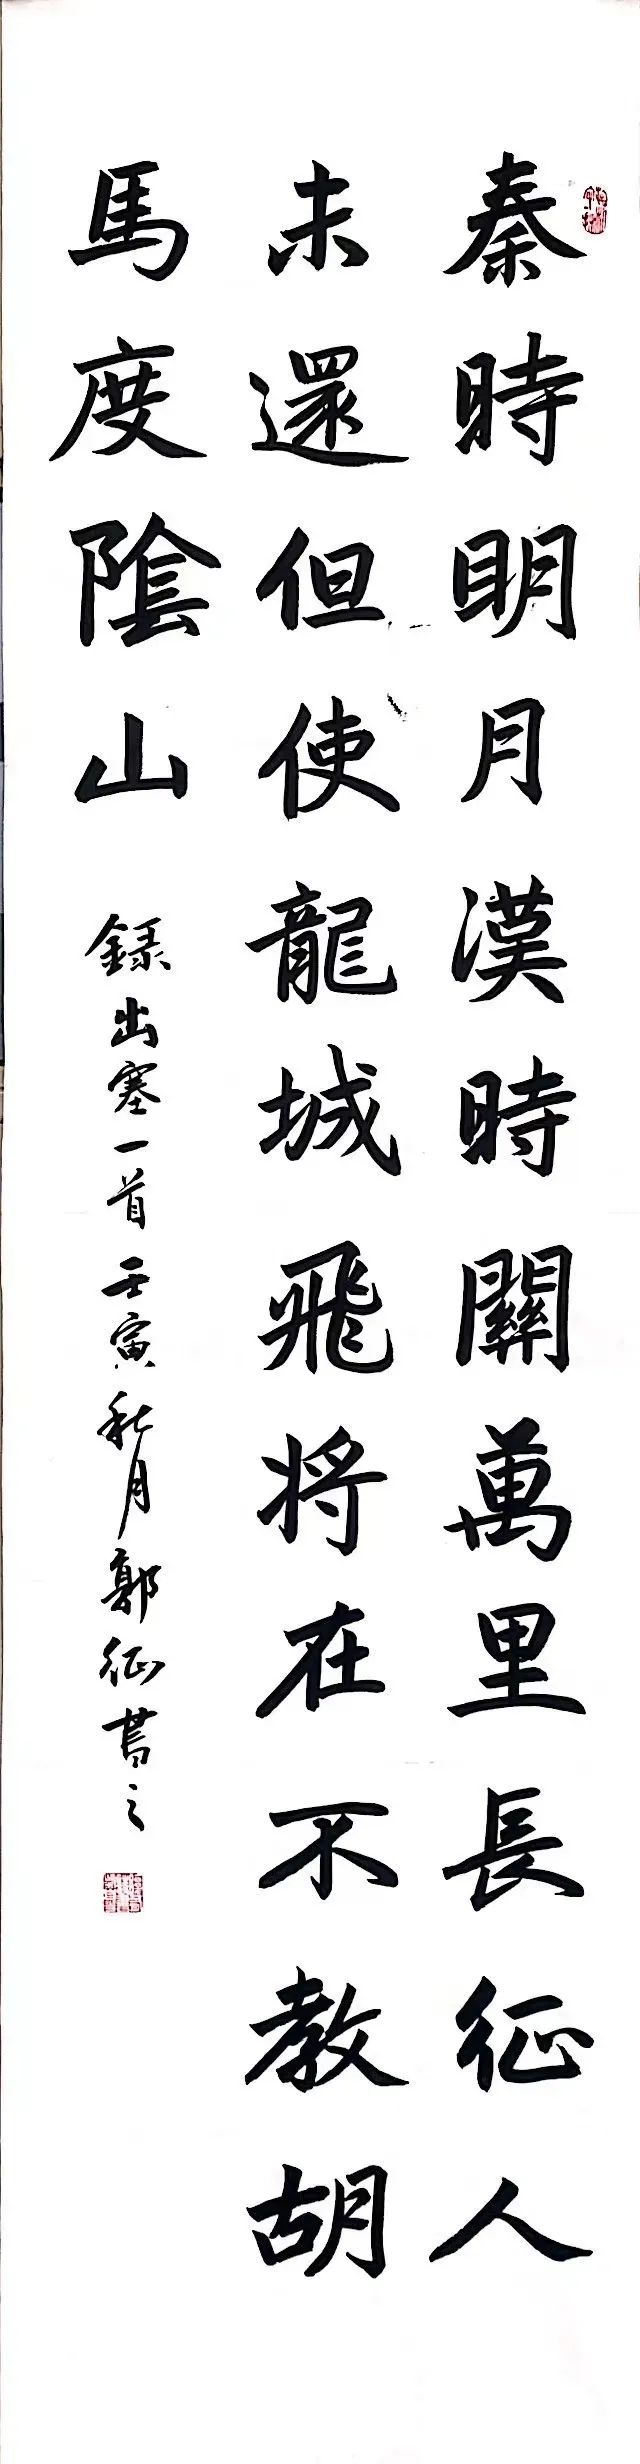 秦時明月漢時關萬里長征人
未還但使龍城飛將在不教胡
馬度陰山
録出塞一首壬寅秋月鄭征書之